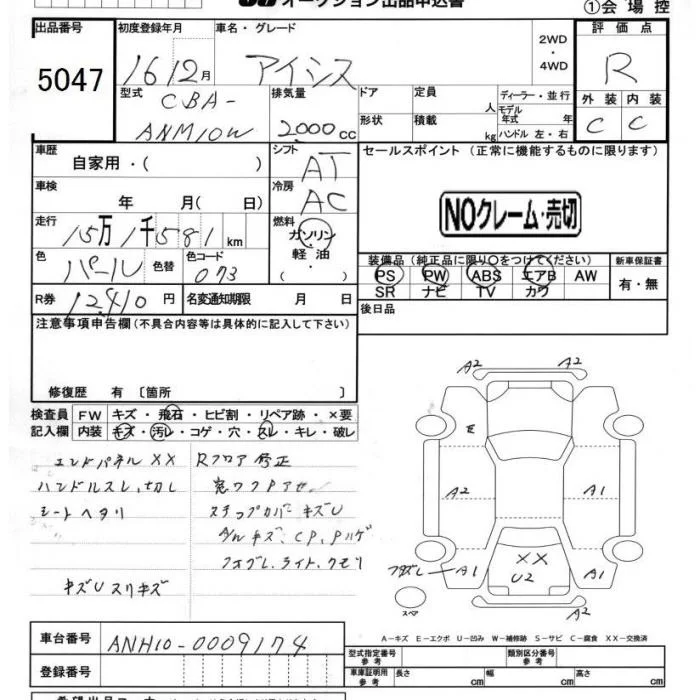 オークション出品申込書
①会場控
出品番号 初度登録年月 車名・グレード 評価点
5047 16 12月 アイシス 2WD・4WD R
型式 CBA-ANM10W 排気量 2000cc
ドア 定員 人 ディーラー・並行 外装 内装
形状 積載 kg モデル年式 年 C C
ハンドル 左・右
車歴 自家用・( ) シフト AT セールスポイント(正常に機能するものに限ります)
車検 年 月( 日) 冷房 AC
NOクレーム・売切
走行 15万1千581km 燃料 ガソリン・軽油 ( ・ )
色 パール 色替 色コード 073
装備品(純正品に限り○をつけてください) 新車保証書
PS PW ABS エアB AW 有・無
SR ナビ TV カワ
R券 12410円 名変通知期限 月 日 後日品
注意事項申告欄(不具合内容等は具体的に記入して下さい)
修復歴 有〔箇所 〕
検査員 FW キズ・飛石・ヒビ割・リペア跡・×要
記入欄 内装 キズ・汚レ・コゲ・穴・スレ・キレ・破レ
エンドパネルXX Rフロア修正
ハンドルスレ、切レ 窓ワクPアセ
シートヘタリ ステップカバーキズU
キズ、CP、Pハゲ
フォグレ、ライト、クモリ
キズUスリキズ
A2 A2
E
A2 A1
A1 XX A1
U2
スペア A2
A-キズ E-エクボ U-凹み W-補修跡 S-サビ C-腐食 XX-交換済
車台番号 ANH10-0009174
型式指定番号 参考 類別区分番号 参考
登録番号 車庫証明用 参考 長さ cm 幅 cm 高さ cm